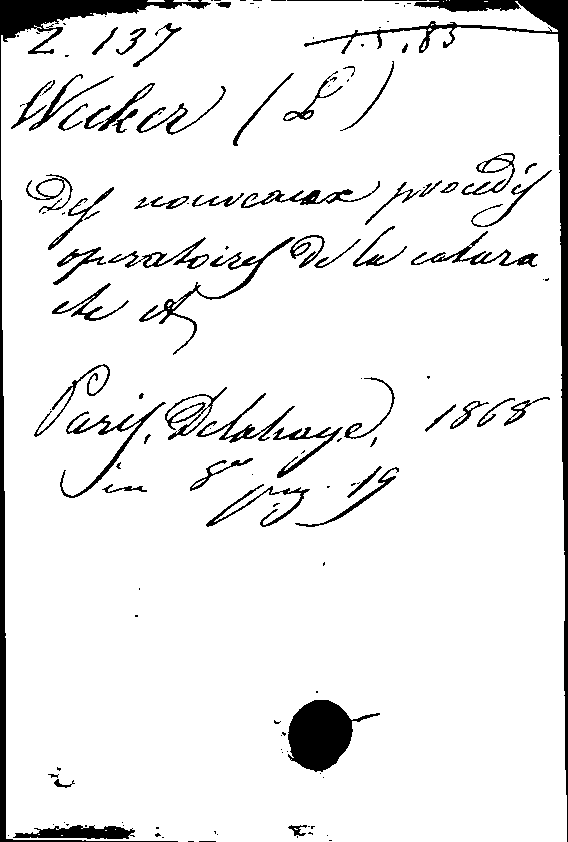 2. 137 1.5.83
Wecker (L)
Des nouveaux procedés
operatoires de la catara
cte etc
Paris, Delahaye, 1868
in 8° pag. 19